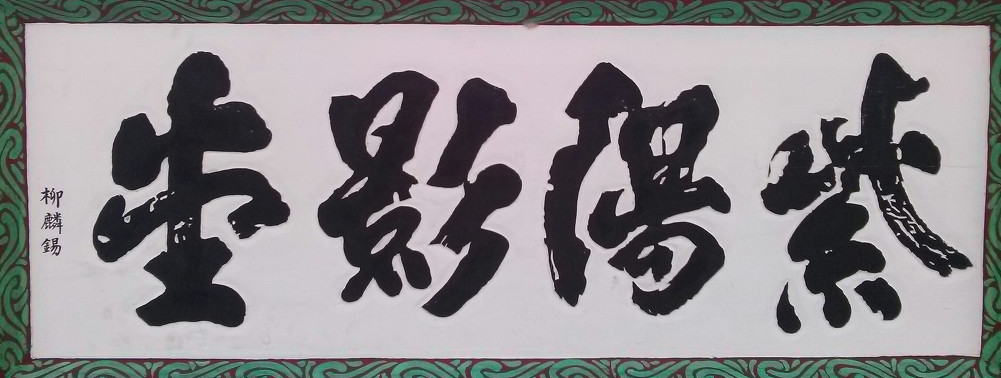 紫陽影堂
柳麟錫